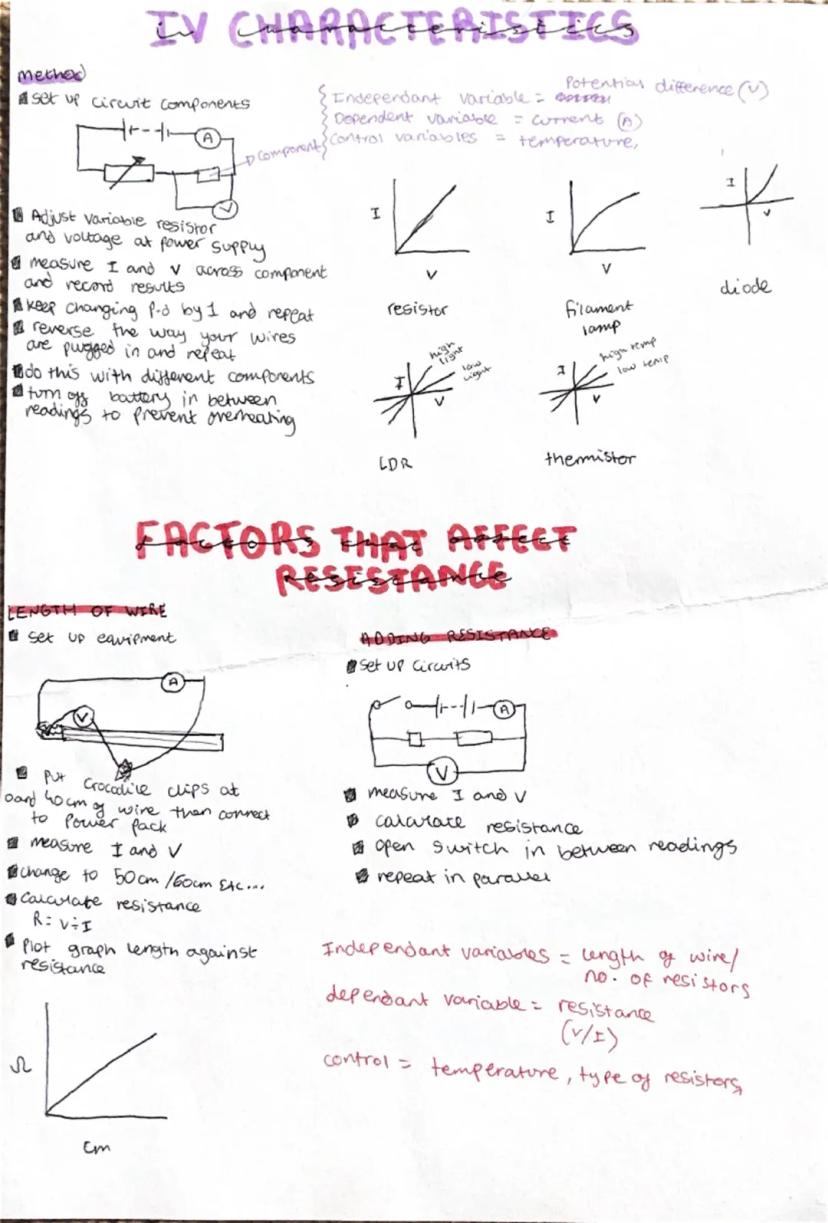 IV CHARACTERISTICS
iv characteristics
method
set up circuit components
A
V
component
Independant variable = Potential difference (V)
Dependent variable = current (A)
control variables = temperature,
Adjust variable resistor
and voltage at power supply
measure I and V across component
and record results
keep changing p.d by 1 and repeat
reverse the way your wires
are plugged in and repeat
do this with different components
turn off battery in between
readings to prevent overheating
I
V
resistor
I
V
filament
lamp
I
V
diode
I
V
high
light
low
light
LDR
I
V
high temp
low temp
thermistor
FACTORS THAT AFFECT
factors that affect
RESISTANCE
resistance
LENGTH OF WIRE
set up equipment
A
V
Put crocodile clips at
0 and 40cm of wire then connect
to power pack
measure I and V
change to 50cm/60cm etc...
Calculate resistance
R = V÷I
Plot graph length against
resistance
Ω
cm
ADDING RESISTANCE
set up circuits
A
V
measure I and V
calculate resistance
open switch in between readings
repeat in parallel
Independant variables = length of wire/
no. of resistors
dependant variable = resistance
(V/I)
control = temperature, type of resistors,